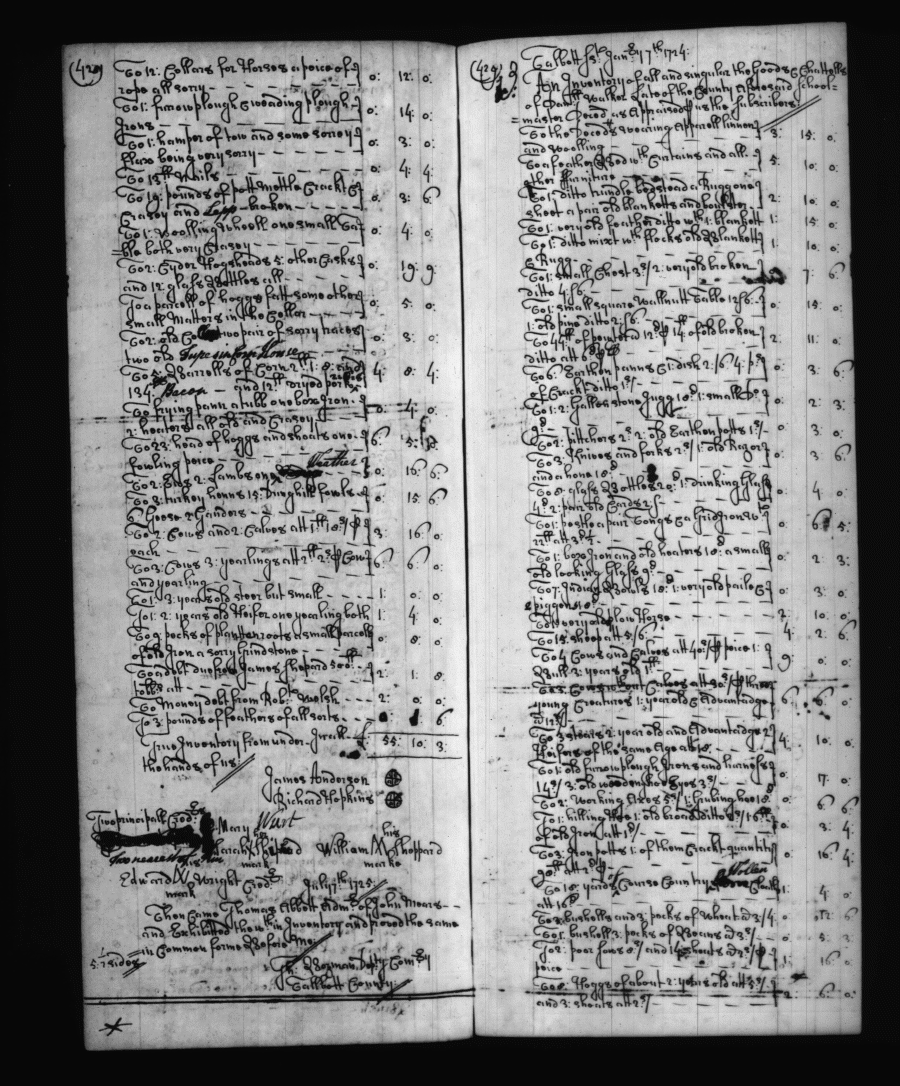 (428)
To 12: Collars for Horses a peice of
rope all sorry 0: 12: 0:
To 1: furrow plough & weeding plough
Irons 0: 14: 0:
To 1: hamper of tow and some sorrey
flax being very sorry 0: 3: 0:
To 13lb Nails 0: 4: 4:
To 10: pounds of pott mettle Crackt &
Crasey and broken 0: 3: 6
To 1: Woolling wheell one small Ta=
=ble both very Crasey 0: 4: 0:
To 2: Cyder Hogsheads 5: other Casks
and 12: glass Bottles all 0: 19: 9:
To a parcell of hoggs fatt some other
small Matters in the Celler 0: 5: 0:
To 2: old two pair of sorry traces
two old 0: 3: 0:
To 5: Barrolls of Corn and
134: Bacon and 12lb dryed porke 4: 8: 4:
To frying pann a tubb one box Iron
2: heators all old and Crasey 0: 4: 0:
To 23: head of hoggs and shoats one
fowling peice 6:
To 2: Ews 2: Lambs one Weather 0: 16: 6:
To 3: turkey henns 15: Dunghill fowls
6: Geese 2 Ganders 0: 15: 6
To 2: Cows and 2: Calves att
each 3: 16: 0:
To 3: Cows 3: yearlings att Cow
and yearling 6: 6: 0:
To 1: 3: years old steer but small 1: 0: 0:
To 1: 2: years old Heifer one yearling both 1: 4: 0:
To 9: pecks of a small parcell
of old Iron a sorry Grindstone 0: 8: 0:
To a debt due from James Shepard 500lb
tobb: att 2: 1: 8:
To Money debt from Robt. Welsh 2: 0: 0:
To 3: pounds of feathers of all sorts 6
True Inventory from under
the hands of us 55: 10: 3:
James Anderson
Richard Hopkins
Two principall Credrs
Mary Wurt
Two nearest of kin
Sarah Shepard
mark
William his Sheppard
marke
Edward W Wright Credr
mark
July 7th: 1725:
Then Came Thomas Abbott Admr. of John Mears
and Exhibited the within Inventory and proved the same
in Common forme Before Me
5: 1/2 sides
Bozman Depty Comry
Talbott County
(429)
Talbott Ss: Janry 7th 1724:
An Inventory of all and singular the Goods & Chattells
of Walker Late of the County Aforesaid School=
=master Deced as Appraised p us the Subscribers
To the Deceds wearing Apparell linnen
and woolling 3: 15: 0:
To a feather Bed wth Curtains and all
other furniture 5: 10: 0:
To 1: ditto trundle bedstead a Rugg one
sheet a pair old blanketts and boulster 2: 10: 0:
To 1: very old feather ditto wth 1: blankett 1: 15: 0:
To 1: ditto mixt wth flocks old Blankett
& Rugg 1: 10: 0:
To 1: small Chest 3s/ 2: very old broken
ditto 4:/6 7: 6:
To 1: small square Wallnutt Table 12/6
1: old pine ditto 2:/6 0: 15: 0:
To 44lb of pewter att 12d p 14 of old broken
ditto att 6d p lb 2: 11: 0:
To 6: Earthen panns
of Crackt ditto 1s/ 0: 3: 6:
To 1: 2: Gallon stone Jugg 18d 1: small Do.
9d 0: 2: 3:
To 2: pitchers 2s: 2: old Earthen potts 1s/ 0: 3: 0:
To 3: Knives and forks 2s/ 1: old Razor
and a hone 18d 0: 3: 6:
To 8: glass Bottles 2s: 1: drinking Glass
4d: 2: pair old Cards 0: 4: 0:
To 1: pestle a pair Tongs & a Gridiron wt
22lb att 3d 1/2 0: 6: 5:
To 1: box Iron and old heators 18d: a small
old looking Glass 9d 0: 2: 3:
To 7: Indian Bowls 18d: 1: very old paile &
piggon 18d 0: 3: 0:
To 1: very old plow Horse 2: 10: 0:
To 15: sheep att 5/6 4: 2: 6:
To 4 Cows and Calves att 40s/ p peice 1:
Bull 3: years old 9: 0: 0:
To 3: Cows without Calves att 30s/ three
young Creatures 1: year old & Advantadge
@ 12s/ 6: 6: 0:
To 3 steers 2: year old and Advantadge 2
Heifers of the same Age att 4: 10: 0:
To 1: old furrow plough Irons and harness
14s/ 3: old weeding hoe Eyes 3s/ 17: 0:
To 2: Working Axes 5s/ 1: Grubing hoe 18d 0: 6: 6:
To 1: hilling Hoe 1: old broad ditto
of old Iron att 1s/ 0: 3: 4:
To 3: Iron potts 1: of them Crackt quantity
att 0: 16: 4:
To 18: yards of Course Country Wollen Cloath
att 16d 1: 4: 0:
To 3: bushells and 3: pecks of Wheat @ 3/4 0: 12: 6
To 1: bushell 3: pecks of Beans @ 3s/ 0: 5: 3:
To 2: poor sows 8s/ and 14 shoats
peice 1: 16: 0:
To Hoggs of about 2: years old att
and 3: shoats att 2s/ 2: 6: 0: